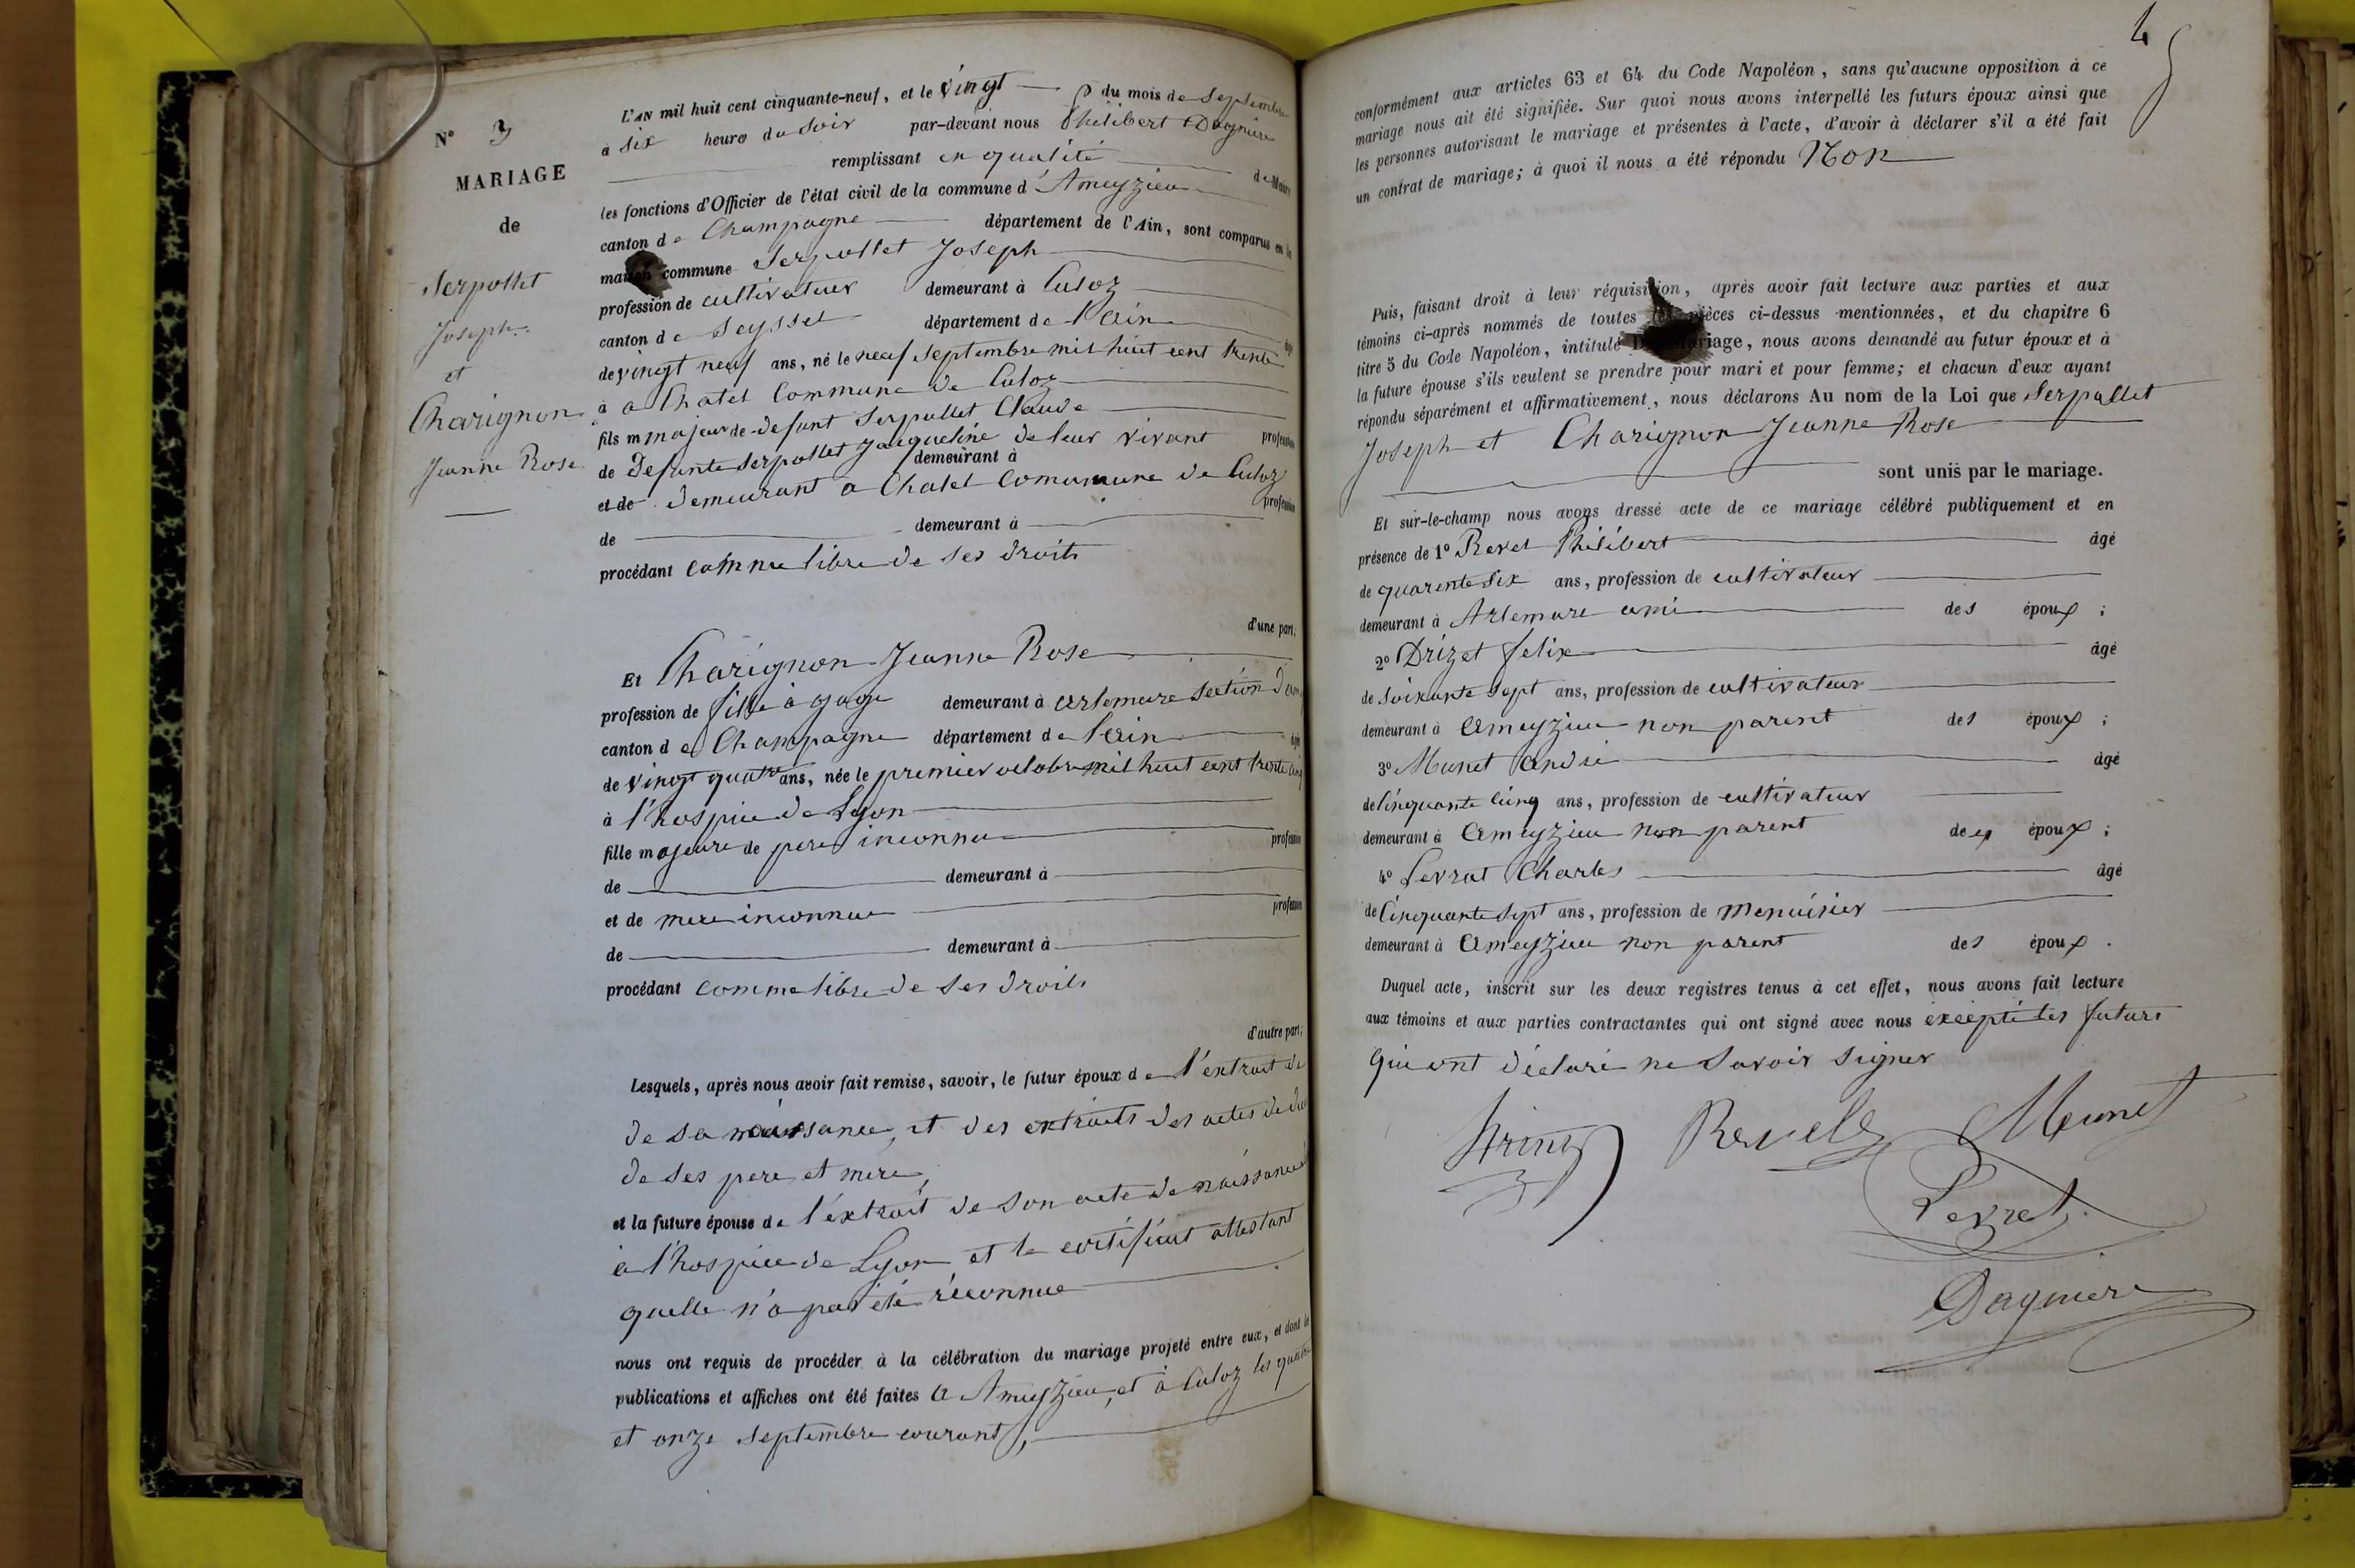 N° 3
MARIAGE
de
Serpollet
Joseph
et
Charignon
Jeanne Rose
L'AN mil huit cent cinquante-neuf, et le vingt du mois de Septembre
à six heure du soir par-devant nous Philibert Dagniere
remplissant en qualité de Maire
les fonctions d'Officier de l'état civil de la commune d'Ameyzieu
canton de Champagne département de l'Ain, sont comparus en la
maison commune Serpollet Joseph
profession de cultivateur demeurant à Culoz
canton de Seyssel département de l'ain âgé
de vingt neuf ans, né le neuf Septembre mil huit cent trente
à a Chatel Commune de Culoz
fils majeur de defunt Serpollet Claude profession
de Defunte Serpollet Jacqueline de leur vivant demeurant à
et de demeurant a Chatel Commune de Culoz profession
de demeurant à
procédant comme libre de ses droits
d'une part;
Et Charignon Jeanne Rose
profession de fille à gage demeurant à artemare section d'am
canton de Champagne département de l'ain âgée
de vingt quatre ans, née le premier octobre mil huit cent trente cinq
à l'hospice de Lyon
fille majeure de pere inconnu profession
de demeurant à
et de mere inconnue profession
de demeurant à
procédant comme libre de ses droits
d'autre part;
Lesquels, après nous avoir fait remise, savoir, le futur époux de l'extrait de
de sa naissance, et des extraits des actes de
de ses pere et mere,
et la future épouse de l'extrait de son acte de naissance
a l'hospice de Lyon et le certificat attestant
quelle n'a pas été réconnue
nous ont requis de procéder à la célébration du mariage projeté entre eux, et dont les
publications et affiches ont été faites a Ameyzieu, et à Culoz les quatre
et onze Septembre courant,
conformément aux articles 63 et 64 du Code Napoléon, sans qu'aucune opposition à ce
mariage nous ait été signifiée. Sur quoi nous avons interpellé les futurs époux ainsi que
les personnes autorisant le mariage et présentes à l'acte, d'avoir à déclarer s'il a été fait
un contrat de mariage; à quoi il nous a été répondu Non
Puis, faisant droit à leur réquisition, après avoir fait lecture aux parties et aux
témoins ci-après nommés de toutes les pièces ci-dessus mentionnées, et du chapitre 6
titre 5 du Code Napoléon, intitulé Du Mariage, nous avons demandé au futur époux et à
la future épouse s'ils veulent se prendre pour mari et pour femme; et chacun d'eux ayant
répondu séparément et affirmativement, nous déclarons Au nom de la Loi que Serpollet
Joseph et Charignon Jeanne Rose
sont unis par le mariage.
Et sur-le-champ nous avons dressé acte de ce mariage célébré publiquement et en
présence de 1° Revel Philibert âgé
de quarente six ans, profession de cultivateur
demeurant à Artemare ami des époux;
2° Drizet felix âgé
de soixante sept ans, profession de cultivateur
demeurant à ameyzieu non parent des époux;
3° Munet André âgé
de cinquante cinq ans, profession de cultivateur
demeurant à ameyzieu non parent des époux;
4° Levrat Charles âgé
de cinquante sept ans, profession de menuisier
demeurant à ameyzieu non parent des époux.
Duquel acte, inscrit sur les deux registres tenus à cet effet, nous avons fait lecture
aux témoins et aux parties contractantes qui ont signé avec nous excepté les futurs
qui ont déclaré ne savoir signer
Revel Munet
Levrat
Dagniere